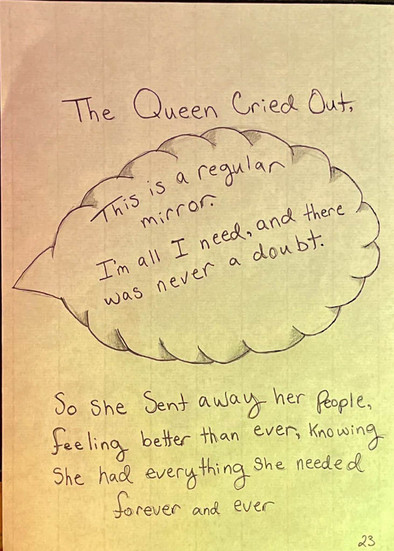 The Queen Cried Out,
This is a regular
mirror.
I'm all I need, and there
was never a doubt.
So She Sent away her People,
feeling better than ever, Knowing
She had everything She needed
forever and ever
23